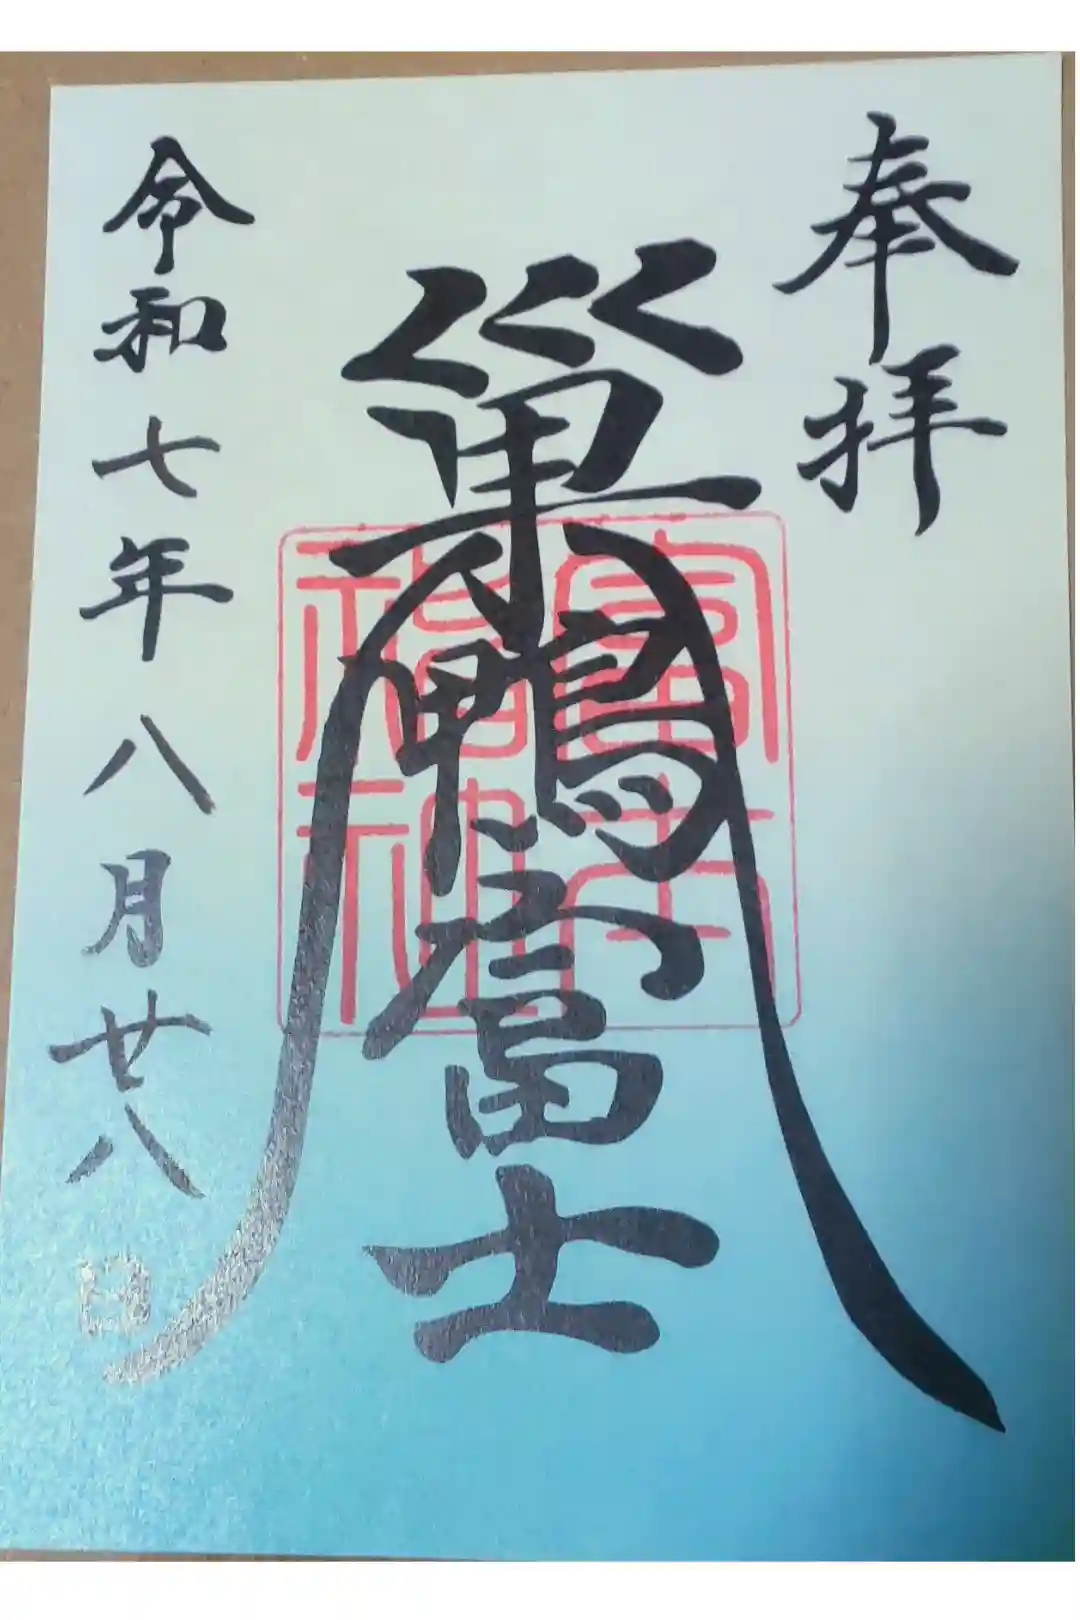 奉拝
巣鴨富士
富士
福神
令和七年八月廿八日